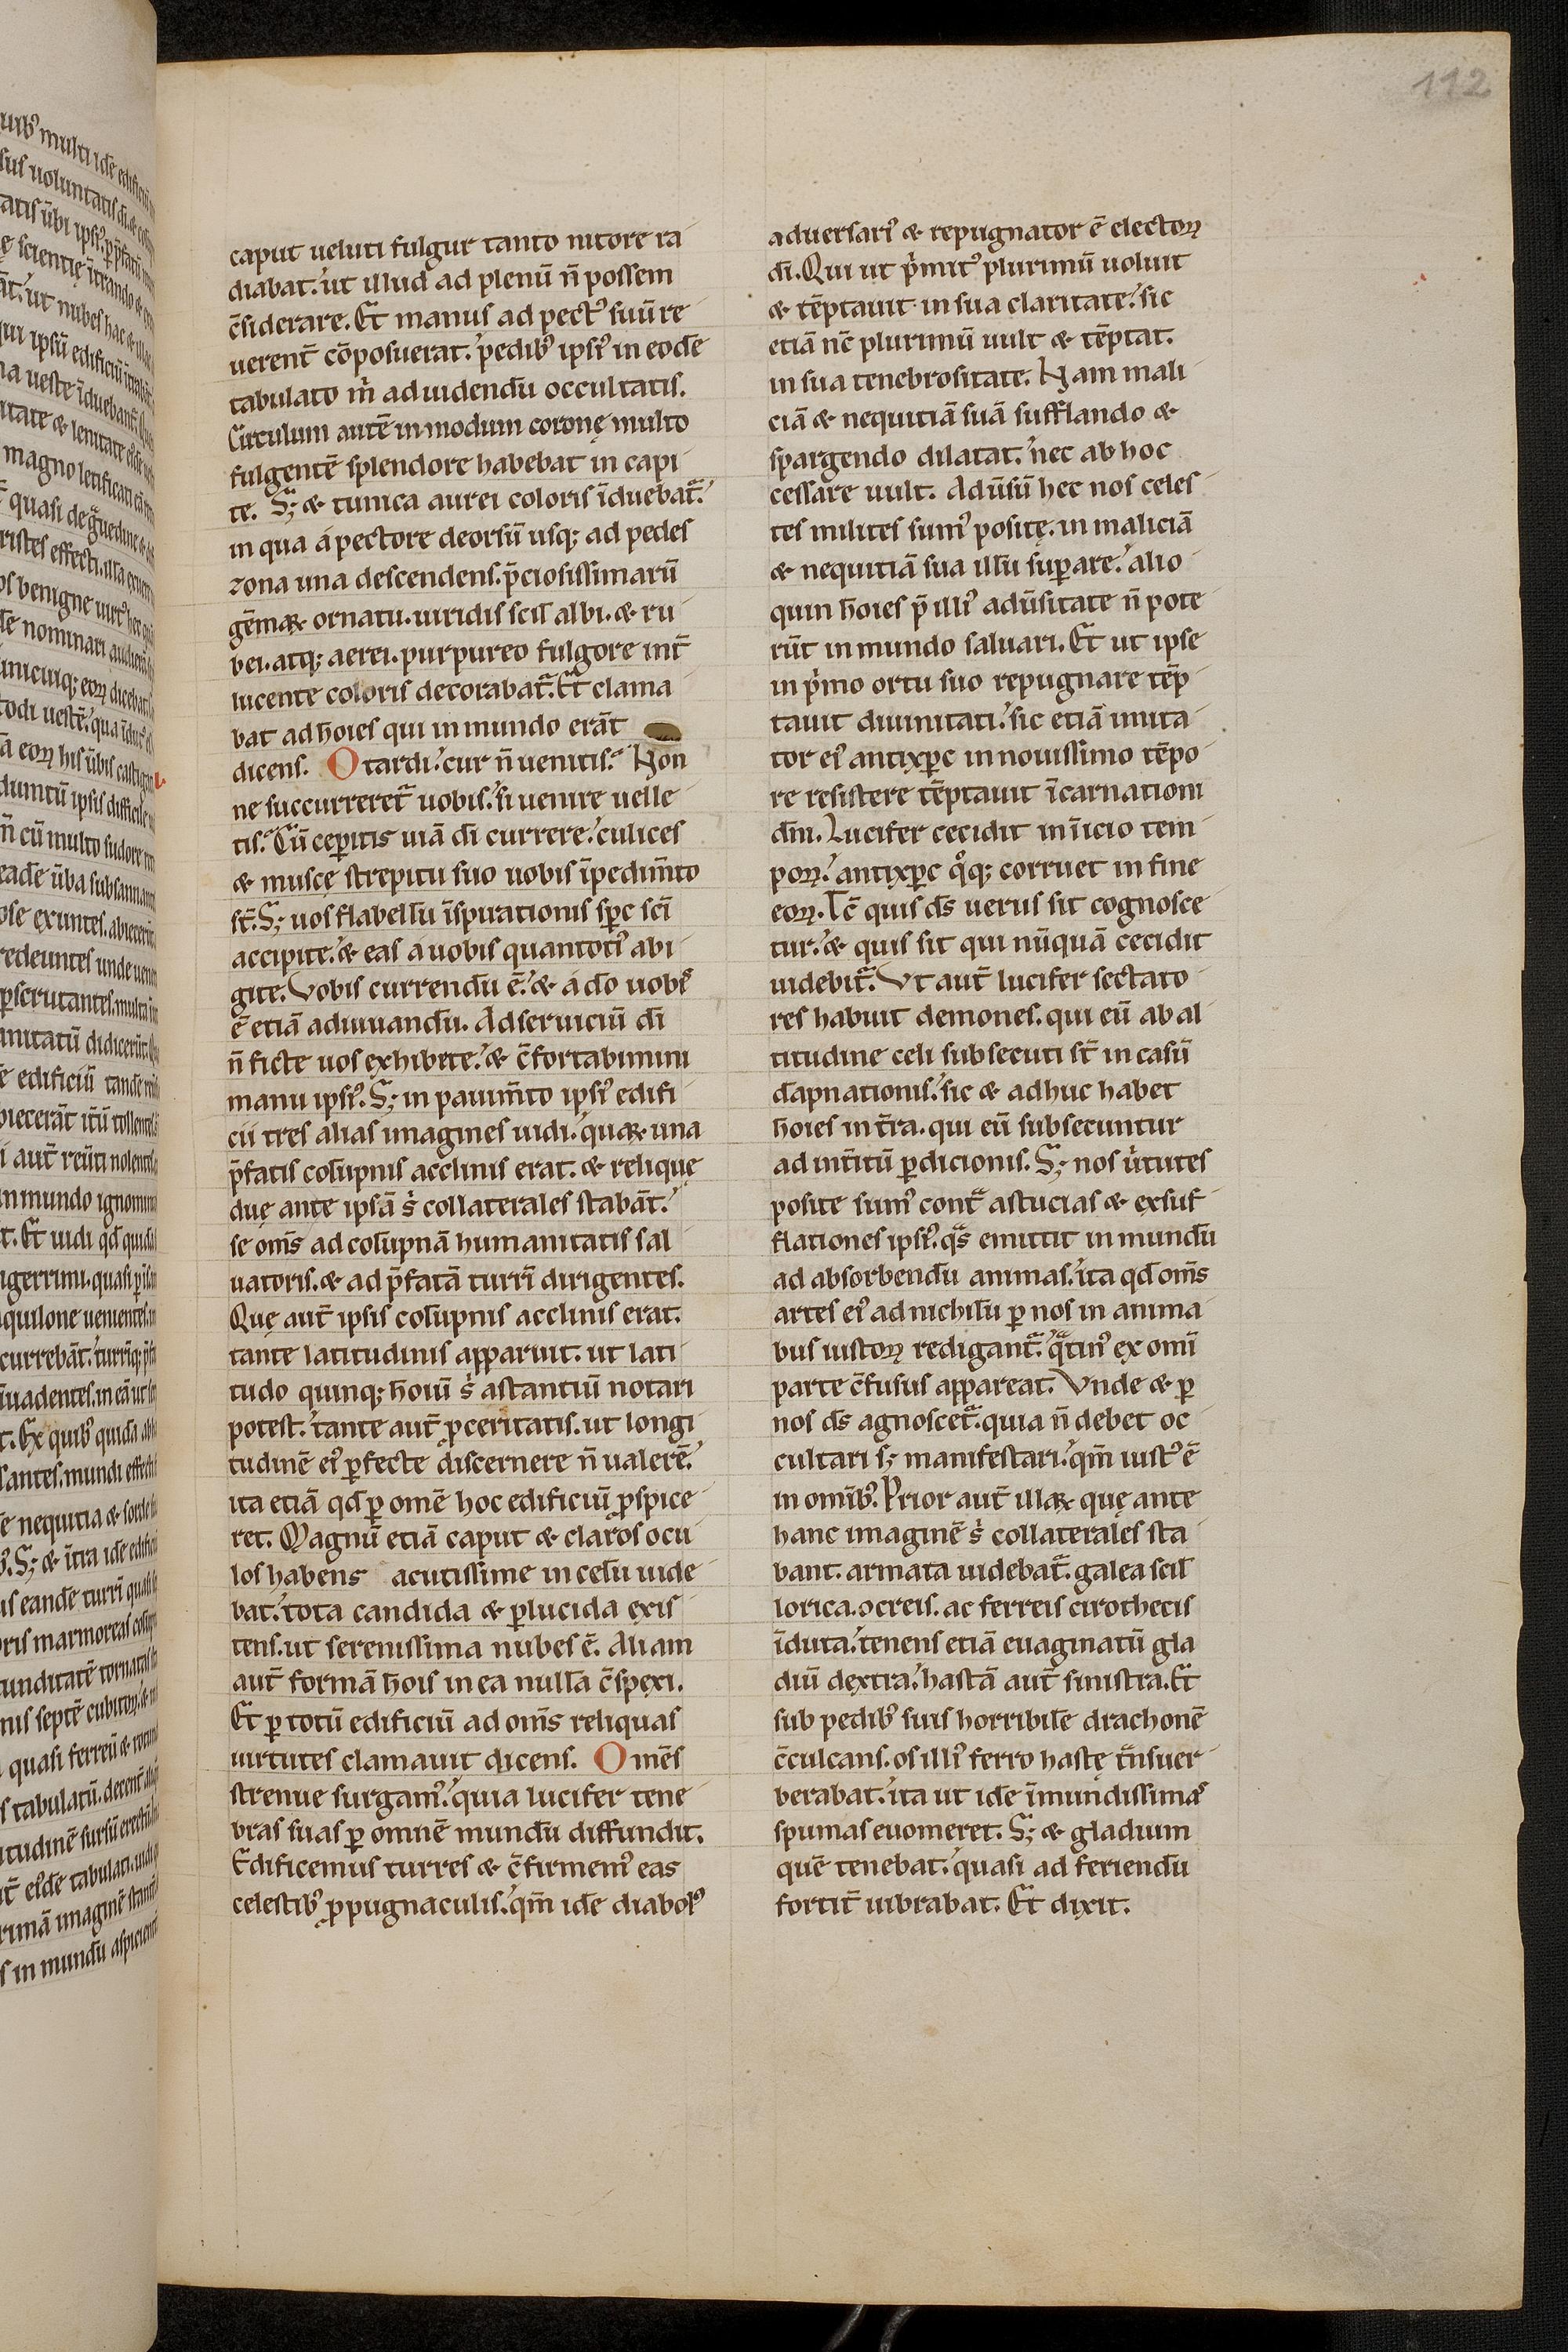 112
caput ueluti fulgur tanto nitore ra
diabat. ut illud ad plenū n̄ possem
c̄siderare. Et manus ad pectꝰ suū re
uerent̄ cōposuerat. pedibꝰ ipsiꝰ in eodē
tabulato m̄ ad uidendū occultatis.
Circulum autē in modum coronę multo
fulgentē splendore habebat in capi
te. S; & tunica aurei coloris īduebat᷑.
in qua a pectore deorsū usq; ad pedes
zona una descendens. p̄ciosissimarū
gēmaꝝ ornatu. uiridis scil̄ albi. & ru
bei. atq; aerei. purpureo fulgore int̄
lucente coloris decorabat᷑. Et clama
bat ad hoīes qui in mundo erāt
dicens. O tardi. cur n̄ uenitis? Non
ne succurreret᷑ uobis. si uenire uelle
tis? Cū cepitis uiā dī currere. culices
& muscę strepitu suo uobis īpedim̄to
st̄. S; uos flabellū īspirationis sp̄c sc̄i
accipite. & eas a uobis quantotiꝰ abi
gite. Vobis currendū ē. & a dō uobꝭ
ē etiā adiuuandū. Ad seruiciū dī
n̄ ficte uos exhibete. & c̄fortabimini
manu ipsiꝰ. S; in pauim̄to ipsiꝰ edifi
cii tres alias imagines uidi. quaꝝ una
p̄fatis colūpnis acclinis erat. & relique
duę ante ipsā s̄ collaterales stabāt.
se om̄s ad colūpnā humanitatis sal
uatoris. & ad p̄fatā turrī dirigentes.
Quę aut̄ ipsis colūpnis acclinis erat.
tante latitudinis apparuit. ut lati
tudo quinq; hoīuī s̄ astantiū notari
potest. tante aut̄ ꝓceritatis. ut longi
tudinē eiꝰ ꝑfecte discernere n̄ ualerē.
ita etiā qđ ꝑ omē hoc edificiū ꝓspice
ret. Magnū etiā caput & claros ocu
los habens acutissime in celū uide
bat. tota candida & ꝑlucida exis
tens. ut serenissima nubes ē. Aliam
aut̄ formā hoīs in ea nullā c̄spexi.
Et ꝑ totū edificiū ad om̄s reliquas
uirtutes clamauit dicens. O mēs
strenue surgamꝰ. quia lucifer tene
bras suas ꝑ omnē mundū diffundit.
Edificemus turres & c̄firmemꝰ eas
celestibꝰ ꝓpugnaculis. qm̄ idē diabolꝰ
aduersariꝰ & repugnator ē electoꝝ
dī. Qui ut p̄mitꝰ plurimū uoluit
& tēptauit in sua claritate. sic
etiā nc̄ plurimū uult & tēptat.
in sua tenebrositate. Nam mali
ciā & nequitiā suā sufflando &
spargendo dilatat. nec ab hoc
cessare uult. Ad ūsū hec nos celes
tes milites sumꝰ positę. in maliciā
& nequitiā sua illū suꝑare. alio
quin hoīes p̄ illiꝰ adūsitate n̄ pote
rūt in mundo saluari. Et ut ipse
in p̄mo ortu suo repugnare tēp
tauit diuinitati. sic etiā imita
tor eiꝰ antixp̄c in nouissimo tēpo
re resistere tēptauit īcarnationi
dn̄i. Lucifer cecidit in īicio tem
poꝝ. antixp̄c qͦq; corruet in fine
eoꝝ. Tc̄ quis ds̄ uerus sit cognosce
tur. & quis sit qui nūquā cecidit
uidebit᷑. Vt aut̄ lucifer sectato
res habuit demones. qui eū ab al
titudine celi subsecuti st̄ in casū
dāpnationis. sic & adhuc habet
hoīes in t̄ra. qui eū subsecuntur
ad int̄itū ꝑdicionis. S; nos ūtutes
posite sumꝰ cont᷑ astucias & exsuf
flationes ipsiꝰ. qᷓs emittit in mundū
ad absorbendū animas. ita qđ om̄s
artes eiꝰ ad nichilū ꝑ nos in anima
bus iustoꝝ redigant᷑. qᷓtinꝰ ex om̄i
parte c̄fusus appareat. Vnde & ꝑ
nos ds̄ agnoscet᷑. quia n̄ debet oc
cultari s; manifestari. qm̄ iustꝰ ē
in omībꝰ. Prior aut̄ illaꝝ quę ante
hanc imaginē s̄ collaterales sta
bant. armata uidebat᷑. galea scil̄
lorica. ocreis. ac ferreis cirothecis
īduta. tenens etiā euaginatū gla
diū dextra. hastā aut̄ sinistra. Et
sub pedibꝰ suis horribilē drachonē
c̄culcans. os illiꝰ ferro hastę t̄nsuer
berabat. ita ut idē īmundissimaꝭ
spumas euomeret. S; & gladium
quē tenebat. quasi ad feriendū
fortit̄ uibrabat. Et dixit.